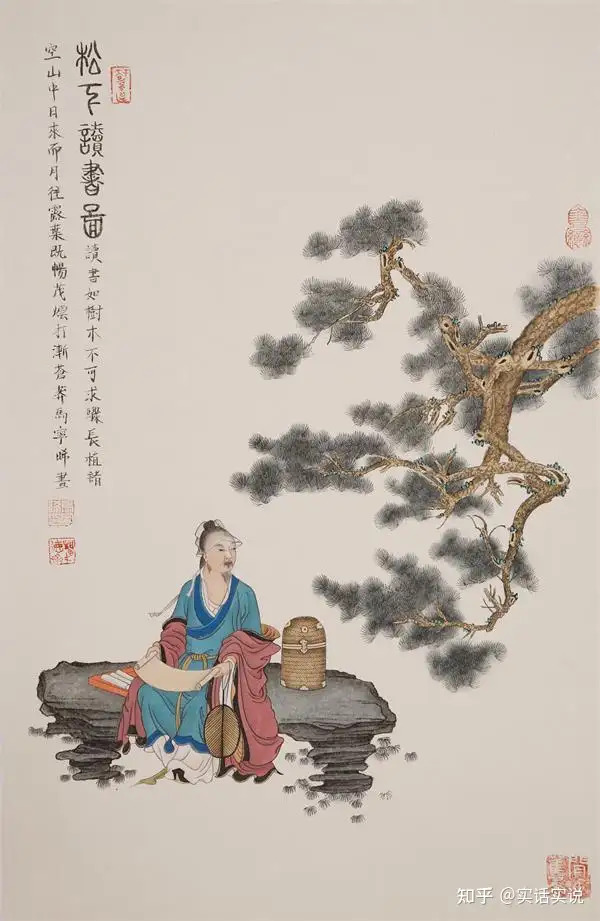 松下讀書圖
讀書如樹木不可求驟長植諸
空山中日來而月往露葉既暢茂煙打漸蒼莽馬寧晞畫
知乎 @实话实说